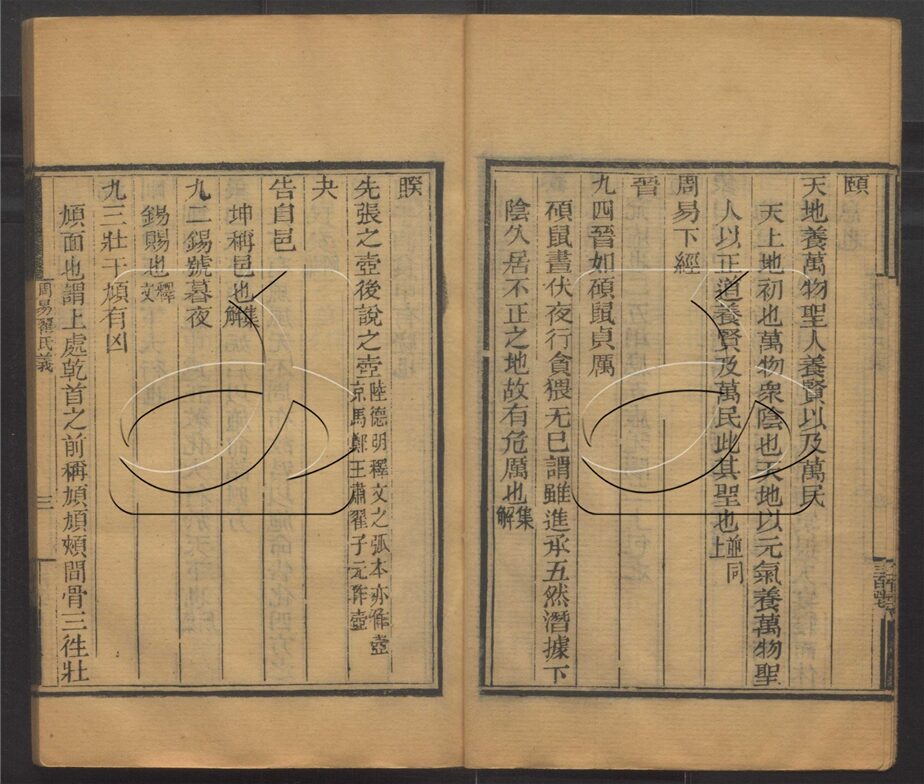 頤
天地養萬物聖人養賢以及萬民
天上地初也萬物衆陰也天地以元氣養萬物聖
人以正道養賢及萬民此其聖也並同上
周易下經
晉
九四晉如碩鼠貞厲
碩鼠晝伏夜行貪猥无已謂雖進承五然潛據下
陰久居不正之地故有危厲也集解
睽
先張之壺後說之壺陸德明釋文之弧本亦作壺京馬鄭王肅翟子元作壺
夬
告自邑
坤稱邑也集解
九二錫號暮夜
錫賜也釋文
九三壯于頄有凶
頄面也謂上處乾首之前稱頄頄頰間骨三往壯
周易翟氏義
三